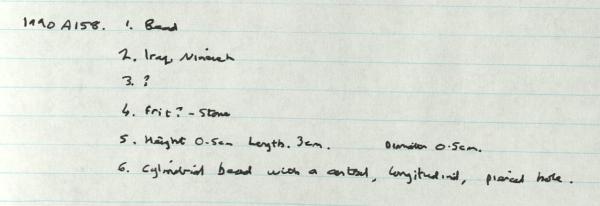 1990 A158. 1. Bead
2. Iraq, Nineveh
3. ?
4. Frit? - Stone
5. Height 0.5cm Length. 3cm. Diameter 0.5cm.
6. Cylindrical bead with a central, longitudinal, pierced hole.